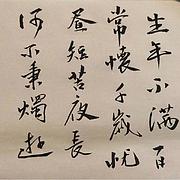 生年不滿百
常懷千歲忧
昼短苦夜長
何不秉燭遊